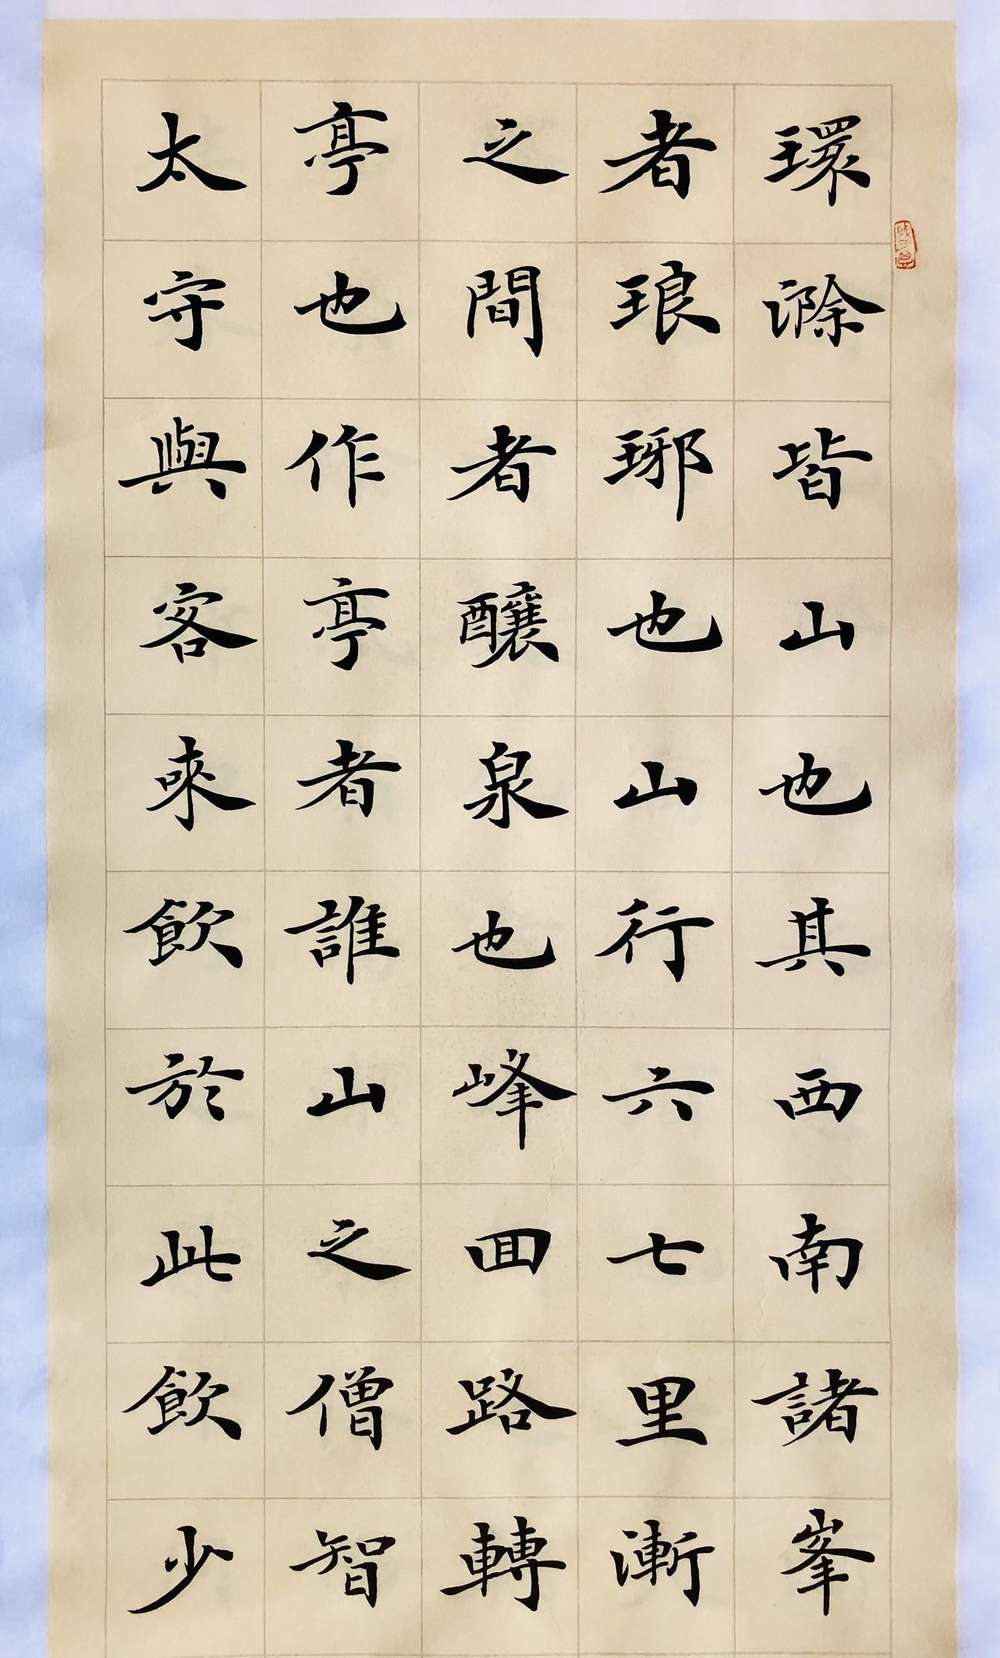 環滁皆山也其西南諸峯
者琅琊也山行六七里漸
之間者釀泉也峰回路轉
亭也作亭者誰山之僧智
太守與客来飲於此飲少